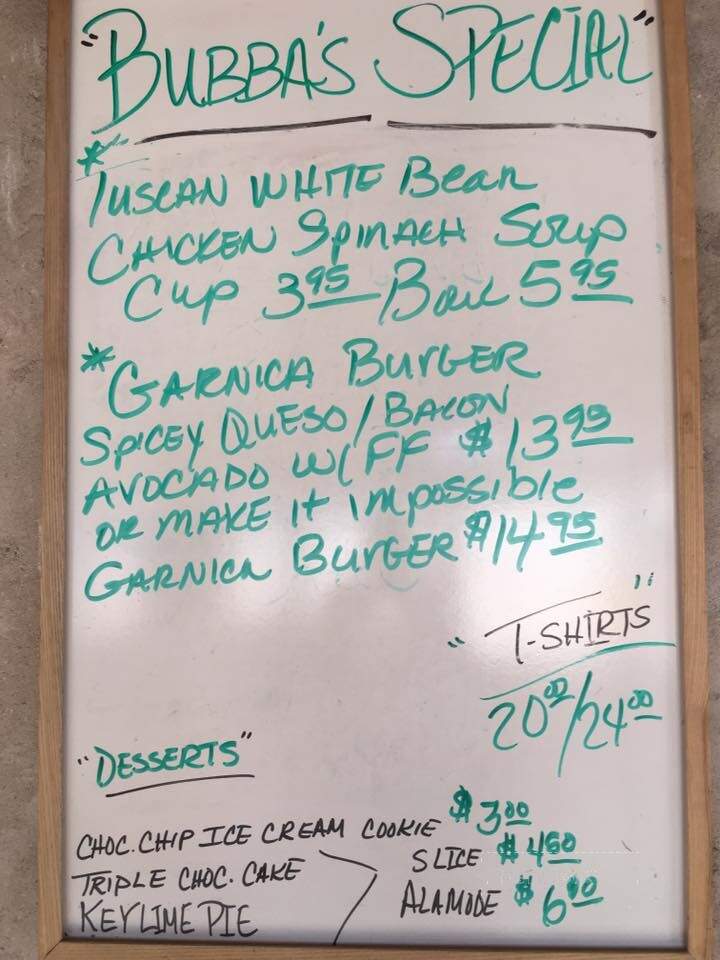 "BUBBA'S SPECIAL"
* TUSCAN WHITE Bean
CHICKEN SPINACH Soup
Cup 3 95 Bowl 5 95
* GARNICA BURGER
SPICEY QUESO/BACON
AVOCADO W/ FF $13 95
OR MAKE It impossible
GARNICA BURGER $14 95
"T-SHIRTS"
20 00/24 00
"DESSERTS"
CHOC. CHIP ICE CREAM COOKIE $3 00
TRIPLE CHOC. CAKE SLICE $4 50
KEYLIME PIE ALAMODE $6 00